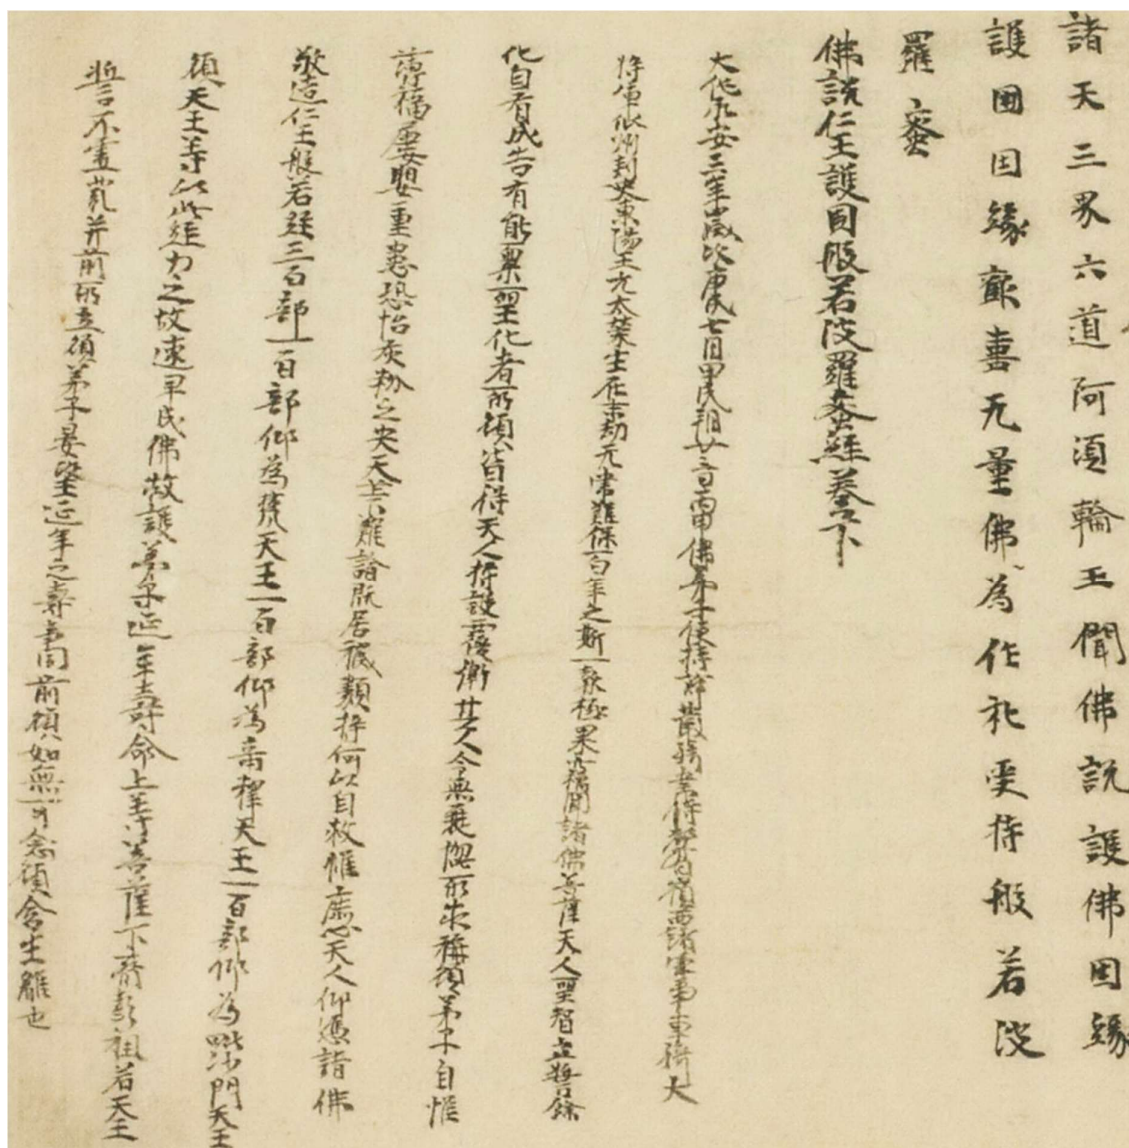 諸天三界六道阿須輪王聞佛說護佛因緣
護國因緣歡喜无量佛為作礼受持般若波
羅蜜
佛說仁王護國般若波羅蜜經卷下
大代永安三年歲次庚戌七月甲戌朔廿三日丙申佛弟子使持節散騎常侍都督嶺西諸軍事車騎大
將軍瓜州刺史東陽王元太榮生在末劫无常難保百年之期一報極果竊聞諸佛菩薩天人聖智立誓餘
化自有成告有能稟聖化者所願皆得天人將護覆衛其人令無衰惱所求稱願弟子自惟
薄福屢嬰重患恐怡灰粉之央天算難諮既居穢類將何以自救惟庶心天人仰憑諸佛
敬造仁王般若經三百部一百部仰為梵天王一百部仰為帝釋天王一百部仰為毗沙門天王
願天王等以此經力之故速早成佛救護弟子延年壽命上等菩薩下齊彭祖若天王
誓不虛發并前所立願弟子晏望延年之壽事同前願如無所念願含生離也